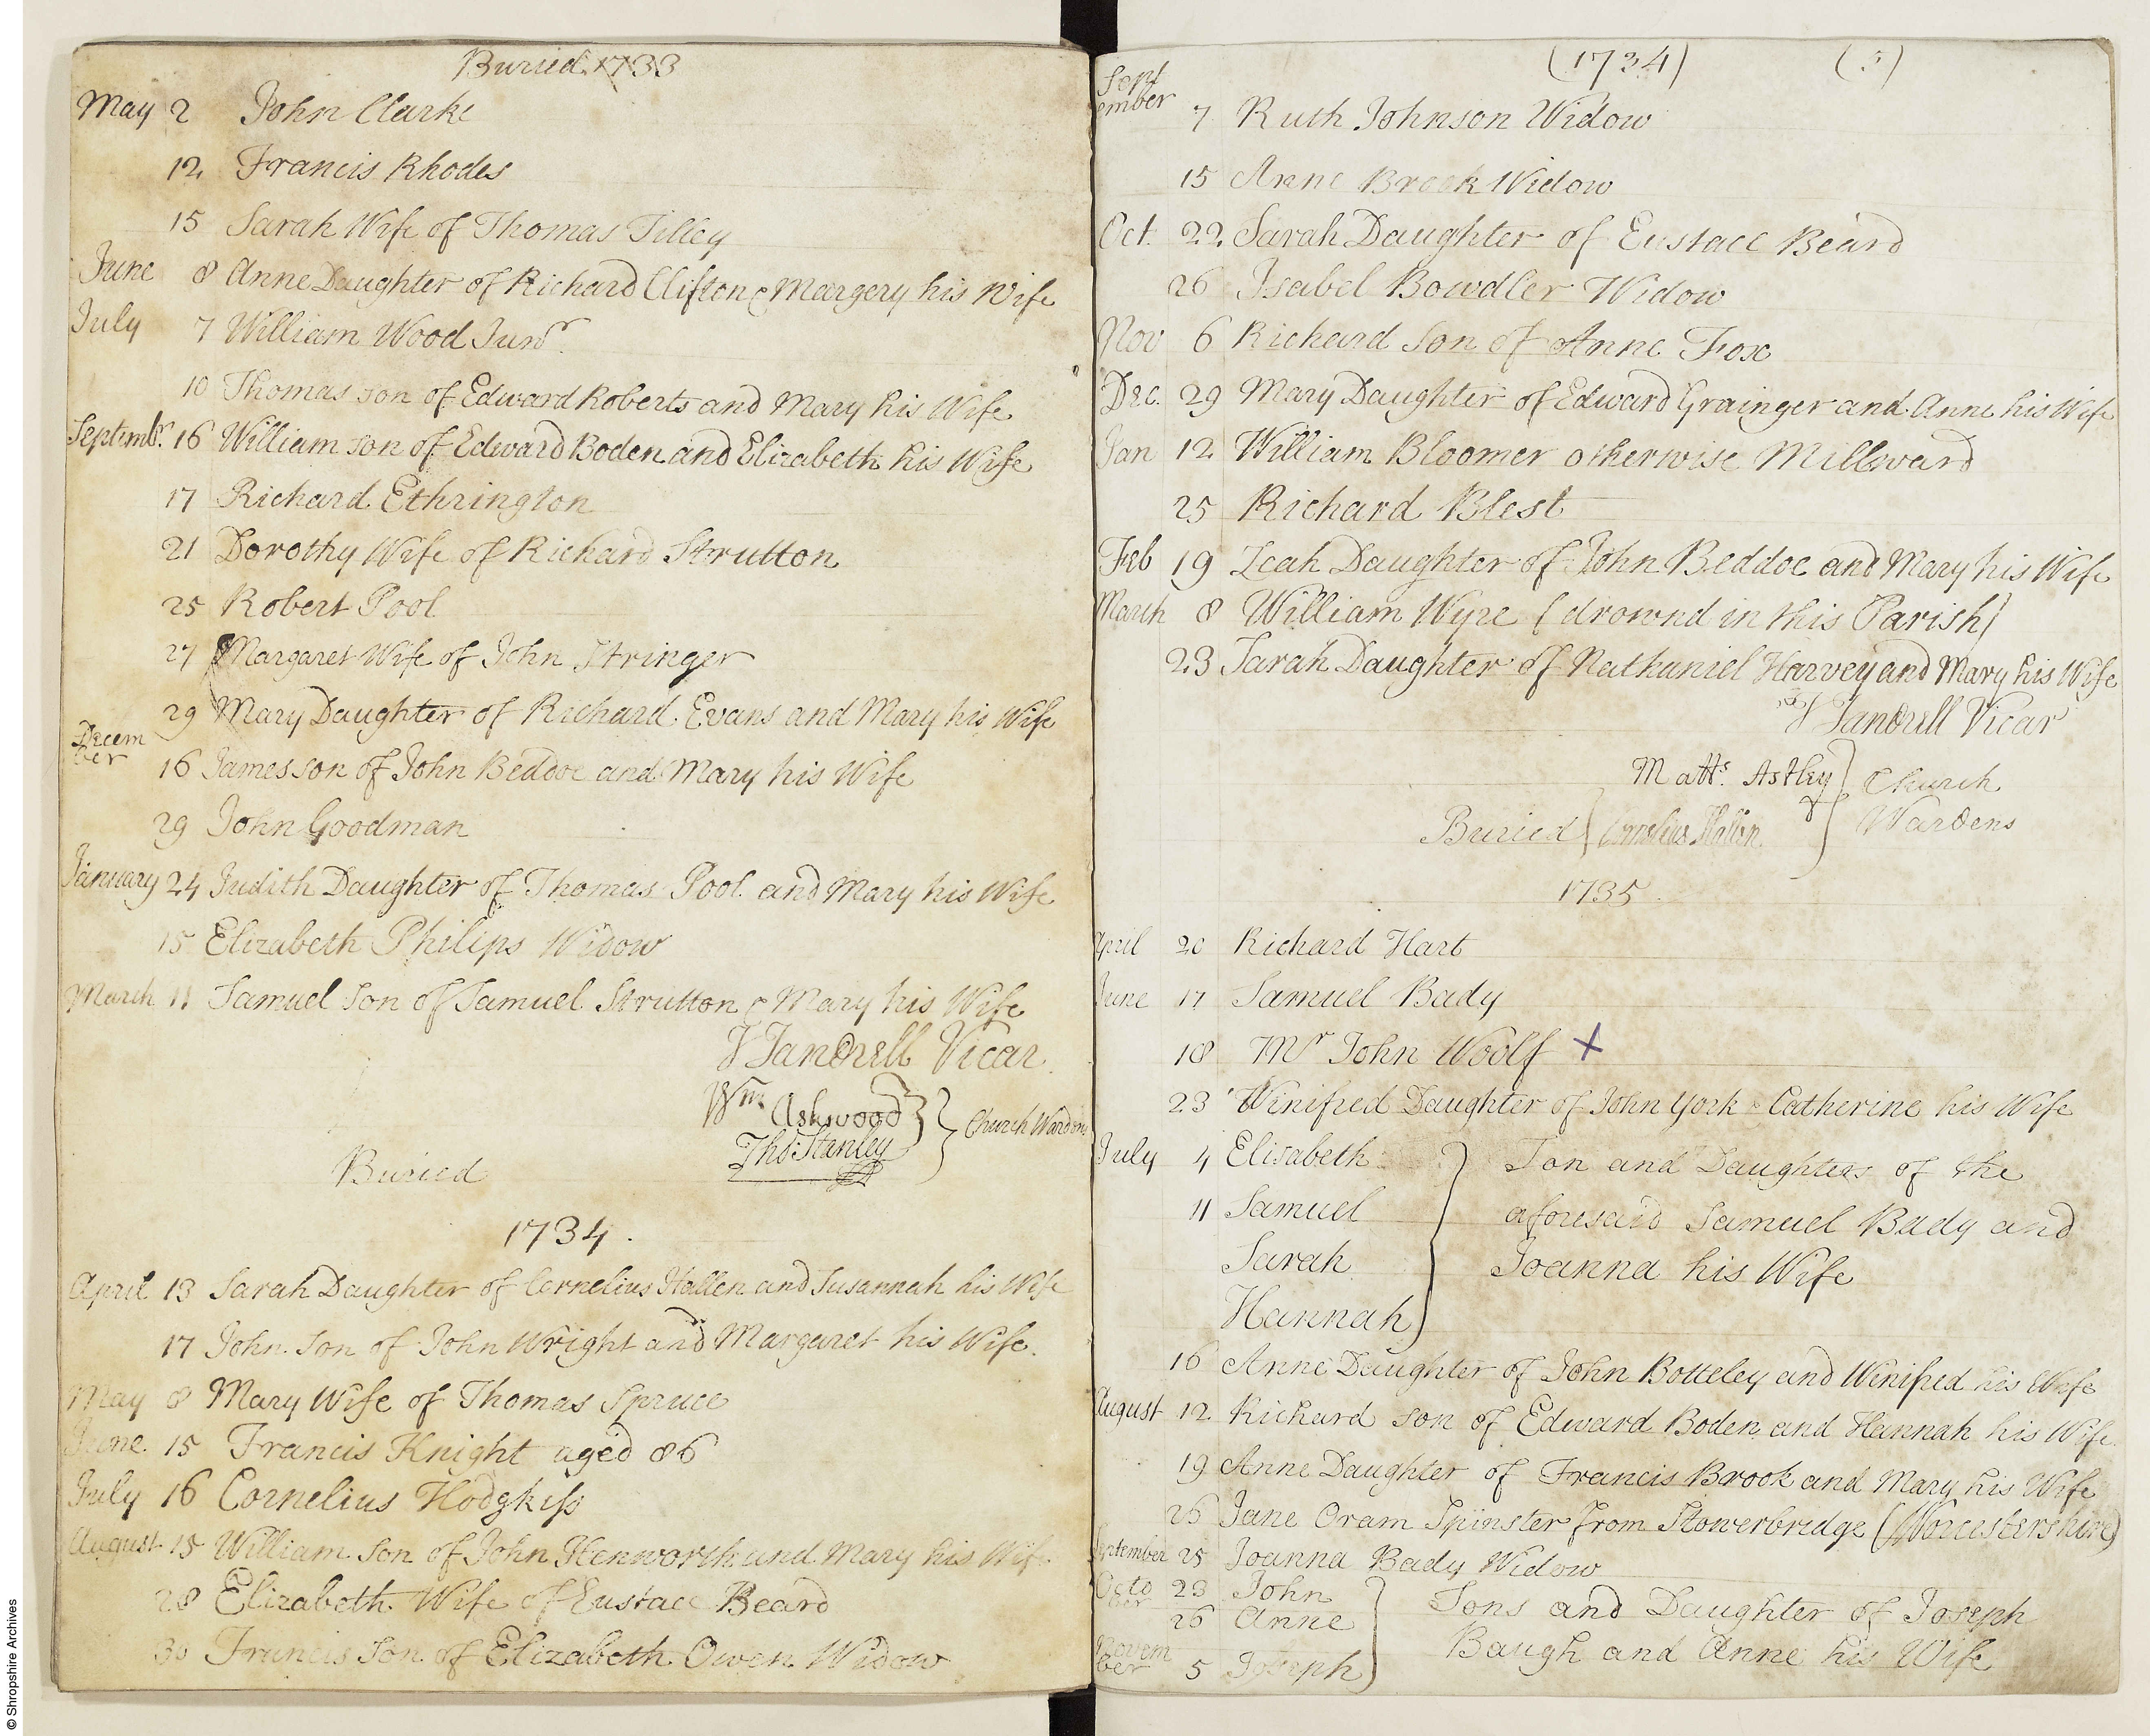 Buried 1733
May 2 John Clarke
12 Francis Rhodes
15 Sarah Wife of Thomas Tilley
June 8 Anne Daughter of Richard Clifton & Margery his Wife
July 7 William Wood Junr.
10 Thomas son of Edward Roberts and Mary his Wife
Septembr. 16 William son of Edward Boden and Elizabeth his Wife
17 Richard Ethrington
21 Dorothy Wife of Richard Strutton
25 Robert Pool
27 Margaret Wife of John Stringer
29 Mary Daughter of Richard Evans and Mary his Wife
Decem
ber 16 James son of John Beddoe and Mary his Wife
29 John Goodman
January 24 Judith Daughter of Thomas Pool and Mary his Wife
15 Elizabeth Philips Widow
March 11 Samuel Son of Samuel Strutton & Mary his Wife
J Jandrell Vicar.
Wm Ashwood
Tho: Stanley
Church Wardens
Buried
1734.
April 13 Sarah Daughter of Cornelius Hallen and Susannah his Wife
17 John Son of John Wright and Margaret his Wife.
May 8 Mary Wife of Thomas Spruce
June 15 Francis Knight aged 86
July 16 Cornelius Hodgkiss
August 15 William Son of John Henworth and Mary his Wife
28 Elizabeth Wife of Eustace Beard
30 Francis Son of Elizabeth Owen Widow
(1734) (3)
Sept
ember 7 Ruth Johnson Widow
15 Anne Brook Widow
Oct. 22 Sarah Daughter of Eustace Beard
26 Isabel Bowdler Widow
Nov 6 Richard Son of Anne Fox
Dec. 29 Mary Daughter of Edward Grainger and Anne his Wife
Jan 12 William Bloomer otherwise Millward
25 Richard Blest
Feb 19 Leah Daughter of John Beddoe and Mary his Wife
March 8 William Wyre (drownd in this Parish)
23 Sarah Daughter of Nathaniel Harvey and Mary his Wife
J Jandrell Vicar
Matts. Astley
Church
Buried Cornelius Hallen
Wardens
1735.
April 20 Richard Hart
June 17 Samuel Bady
18 Mr John Woolf X
23 Winifred Daughter of John York & Catherine his Wife
July 4 Elisabeth Son and Daughters of the
11 Samuel aforesaid Samuel Bady and
Sarah Joanna his Wife
Hannah
16 Anne Daughter of John Botteley and Winifred his Wife
August 12 Richard son of Edward Boden and Hannah his Wife
19 Anne Daughter of Francis Brook and Mary his Wife
26 Jane Oram Spinster from Stowerbridge (Worcestershire)
September 25 Joanna Bady Widow
Octo
ber 23 John Sons and Daughter of Joseph
26 Anne
Baugh and Anne his Wife
Novem
ber 5 Joseph
© Shropshire Archives